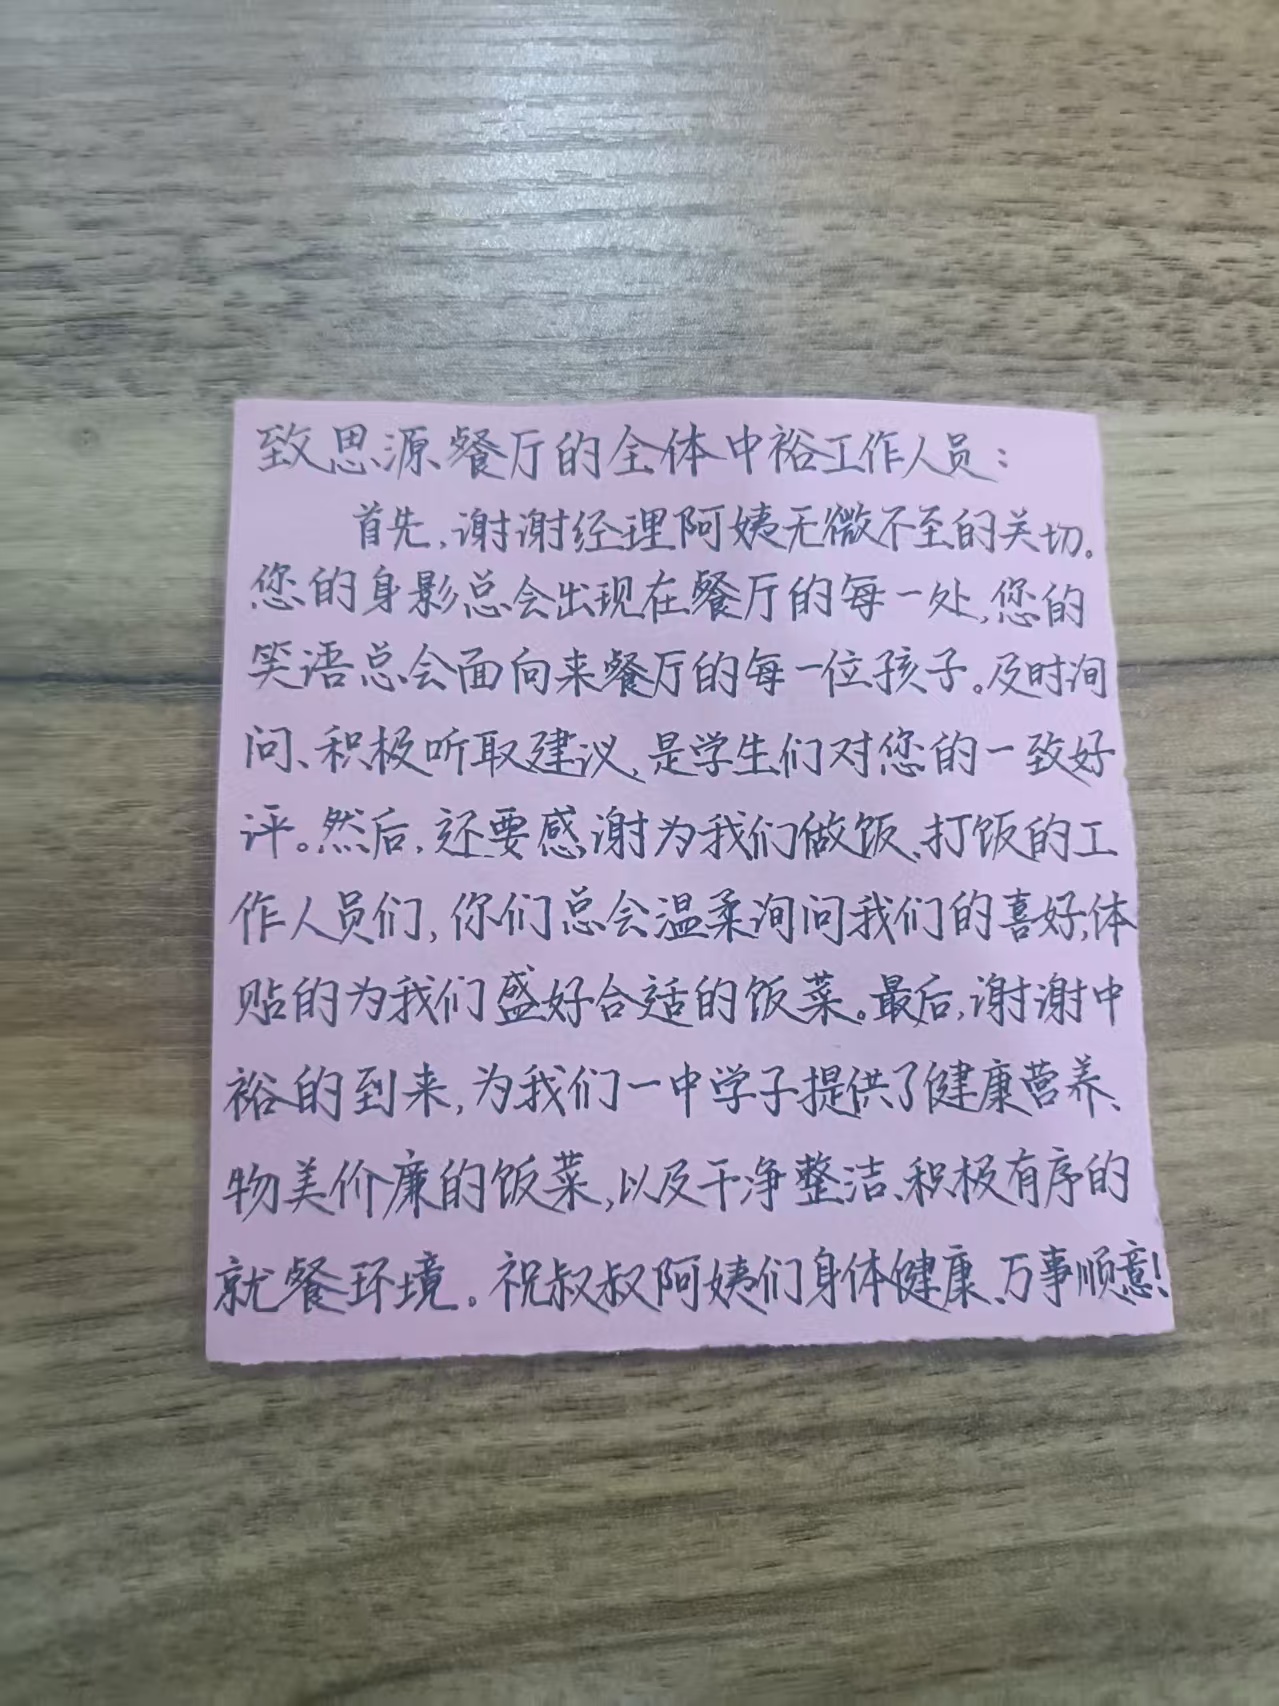 致思源餐厅的全体中裕工作人员：
首先，谢谢经理阿姨无微不至的关切。
您的身影总会出现在餐厅的每一处，您的
笑语总会面向来餐厅的每一位孩子。及时询
问、积极听取建议，是学生们对您的一致好
评。然后，还要感谢为我们做饭、打饭的工
作人员们，你们总会温柔询问我们的喜好，体
贴的为我们盛好合适的饭菜。最后，谢谢中
裕的到来，为我们一中学子提供了健康营养、
物美价廉的饭菜，以及干净整洁、积极有序的
就餐环境。祝叔叔阿姨们身体健康、万事顺意！